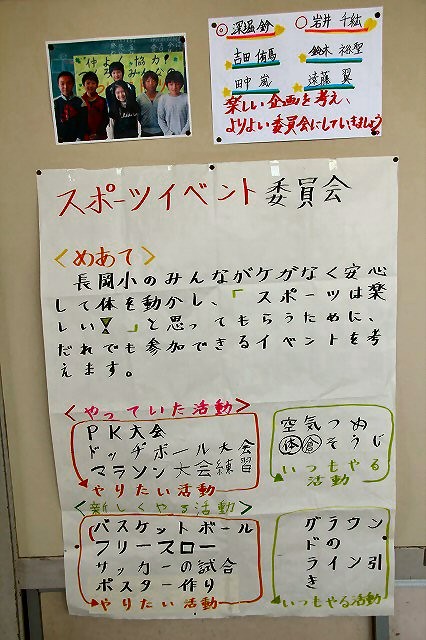 仲よく協力
◎深堀 鈴 ○岩井 千紘
吉田 侑馬 鈴木 裕聖
田中 嵐 遠藤 翼
楽しい企画を考え、
よりよい委員会にしていきましょう
スポーツイベント委員会
<めあて>
長岡小のみんながケガなく安心
して体を動かし、「スポーツは楽
しい!」と思ってもらうために、
だれでも参加できるイベントを考
えます。
<やっていた活動>
PK大会
ドッヂボール大会
マラソン大会練習
やりたい活動
空気つめ
体倉そうじ
いつもやる
活動
<新しくやる活動>
バスケットボール
フリースロー
サッカーの試合
ポスター作り
やりたい活動
グラウン
ドの
ライン引
き
いつもやる活動